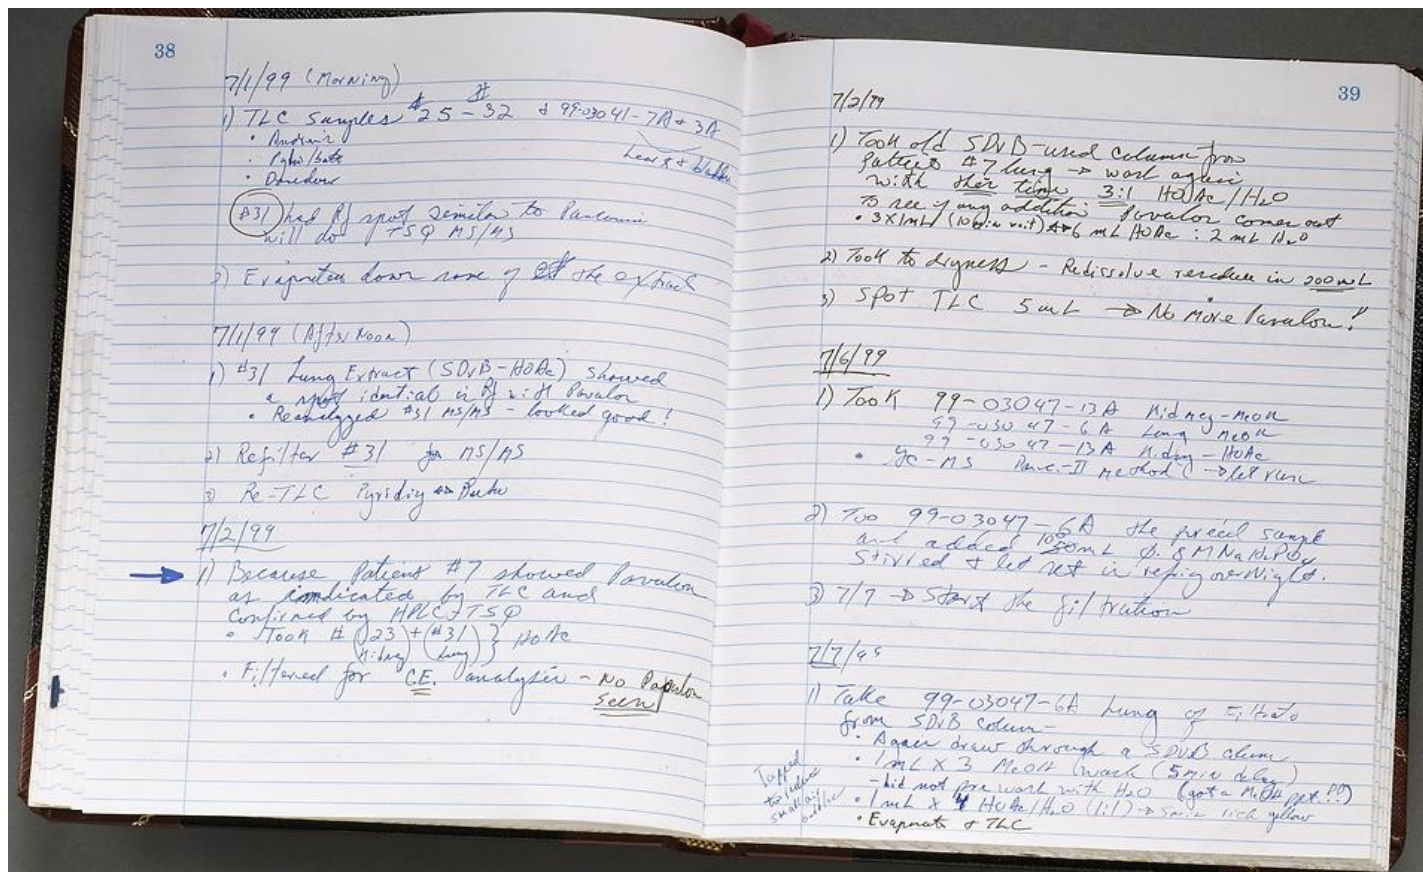 38
7/1/99 (Morning)
1) TLC Samples #25 - #32 & 99-03041-7A & 3A
Heart & bladder
#31 had Rf spot similar to
will do TSQ MS/MS
2) Evaporated down some of the extract
7/1/99 (AfterNoon)
1) #31 Lung Extract (SDVB-HOAc) showed
a spot idential in Rf with Pavulon
• Reanalyzed #31 MS/MS - looked good!
2) Refilter #31 for MS/MS
3) Re-TLC
7/2/99
1) Because Patient #7 showed Pavulon
as indicated by TLC and
confirmed by HPLC & TSQ
• Took # (23) + (#31) } HOAc
Kidney Lung
• Filtered for C.E. analysis - No Pavulon
seen
39
7/2/99
1) Took old SDVB-used column from
patient #7 lung → wash again
with this time 3:1 HOAc/H2O
To see if any addition Pavulon comes out
• 3X1mL (10 min wait) 6 mL HOAc : 2 mL H2O
2) Took to dryness - Redissolve residue in 200mL
3) Spot TLC 5mL → No More Pavulon!!
7/6/99
1) Took 99-03047-13A Kidney-MeOH
99-03047-6A Lung MeOH
99-03047-13A Kidney-HOAc
• GC-MS method → let run
2) Too 99-03047-6A the sample
and added 100 mL 0.8M NaH2PO4
Stirred & let set in refrig overNight.
3) 7/7 → Start the filtration
7/7/99
1) Take 99-03047-6A Lung of Filtrate
from SDVB column-
• Again draw through a SDVB column
• 1mL X 3 MeOH wash (5min delay)
- did not pre wash with H2O (got a MeOH ppt.!!)
• 1mL X 4 HOAc/H2O (1:1) → 5min rich yellow
• Evaporate & TLC
Tapped
to reduce
small air
bubbles